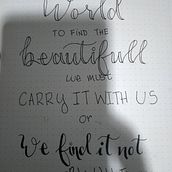 World
TO FIND THE
beautifull
we must
CARRY IT WITH US
or...
We find it not